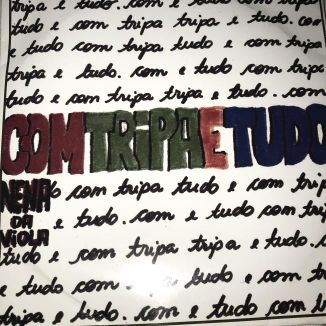 tripa e tudo. com com tripa
tudo e com tripa tripa e tudo. com
e tudo com tripa tudo e com tripa
tripa e tudo. com e tudo com tripa
tudo e com tripa tripa e tudo. com
COMTRIPAETUDO
NENA
DA
VIOLA
com tripa tudo e com trip
e tudo. com e tudo com trip
tudo e com tripa tripa e tudo.
e tudo com tripa tudo e com t
tripa e tudo. com e tudo com t